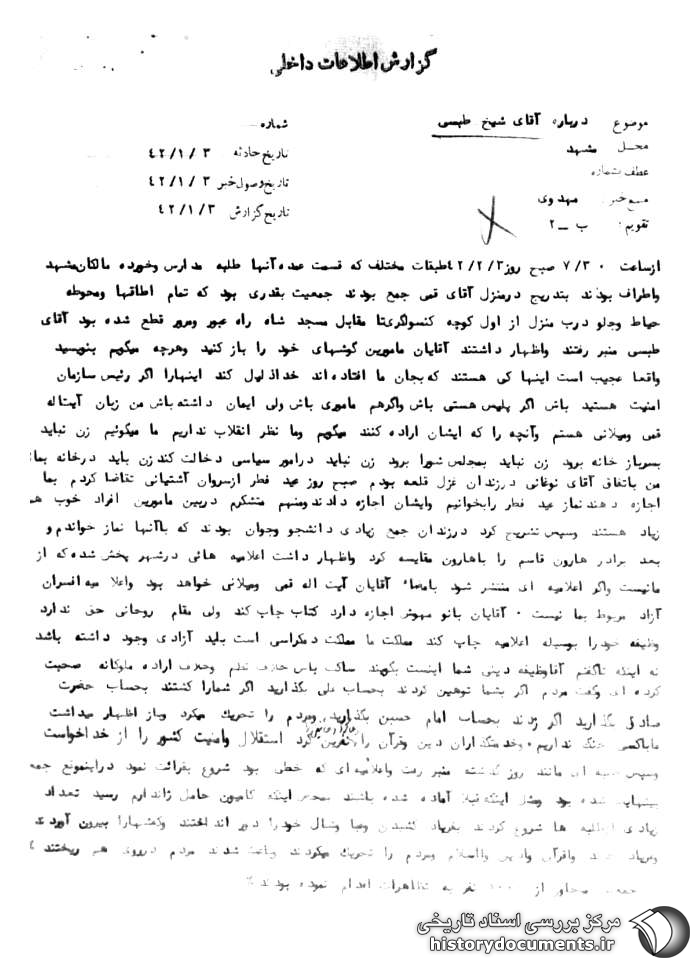 گزارش اطلاعات داخلی
موضوع درباره آقای شیخ طبسی
شماره
محل مشهد
تاریخ حادثه ۴۲/۱/۳
عطف بشماره
تاریخ وصول خبر ۴۲/۱/۳
منبع خبر: مهدوی
تاریخ گزارش ۴۲/۱/۳
تقویم: ب ــ ۲
ازساعت ۷/۳۰ صبح روز ۴۲/۲/۳ طبقات مختلف که قسمت عمده آنها طلبه مدارس وخورده مالکان مشهد
واطراف بودند بتدریج درمنزل آقای قمی جمع بودند جمعیت بقدری بود که تمام اطاقها ومحوطه
حیاط وجلو درب منزل از اول کوچه کنسولگری تا مقابل مسجد شاه راه عبور ومرور قطع شده بود آقای
طبسی منبر رفتند واظهار داشتند آقایان مامورین گوشهای خود را باز کنید وهرچه میگویم بنویسید
واقعا عجیب است اینها کی هستند که بجان ما افتاده اند خداذلیل کند اینهارا اگر رئیس سازمان
امنیت هستید باش اگر پلیس هستی باش واگرهم ماموری باش ولی ایمان داشته باش من زبان آیت اله
قمی ومیلانی هستم وآنچه را که ایشان اراده کنند میگویم وما نظر انقلاب نداریم ما میگوئیم زن نباید
بسرباز خانه برود زن نباید بمجلس شورا برود زن نباید درامور سیاسی دخالت کند زن باید درخانه بماند
من باتفاق آقای نوغانی درزندان غزل قلعه بودم صبح روز عید فطر ازسروان آشتیانی تقاضا کردم بما
اجازه دهند نماز عید فطر رابخوانیم وایشان اجازه دادند ومنهم متشکرم دربین مامورین افراد خوب هم
زیاد هستند وسپس تشریح کرد درزندان جمع زیادی دانشجو وجوان بودند که باآنها نماز خواندم و
بعد برادر هارون قاسم را باهارون مقایسه کرد واظهار داشت اعلامیه هائی درشهر پخش شده که از
مانیست واگر اعلامیه ای منتشر شود بامضاء آقایان آیت اله قمی ومیلانی خواهد بود واعلا میه افسران
آزاد مربوط بما نیست ۰ آقایان بانو مهوش اجازه دارد کتاب چاپ کند ولی مقام روحانی حق ندارد
وظیفه خود را بوسیله اعلامیه چاپ کند مملکت ما مملکت دمکراسی است باید آزادی وجود داشته باشد
نه اینکه تاگفتم آقا وظیفه دینی شما اینست بگویند ساکت باش خلاف نظم وخلاف اراده ملوکانه صحبت
کرده ای وگفت مردم اگر بشما توهین کردند بحساب علی بگذارید اگر شمارا کشتند بحساب حضرت
صادق بگذارید اگر زدند بحساب امام حسین بگذارید ومردم را تحریک میکرد وباز اظهار میداشت
ماباکسی جنگ نداریم وخدمتگذاران دین وقرآن را نفرین کرد استقلال وامنیت کشور را از خداخواست
وسپس ای مانند روز گذشته منبر رفت واعلامیه ای که خطی بود شروع بقرائت نمود دراینموقع جمعیت
شده بود ومثل اینکه قبلا آماده شده باشند بمحض اینکه کامیون حامل ژاندارم رسید تعداد
زیادی ازطلبه ها شروع کردند بفریاد کشیدن وعبا وشال خودرا دور انداختند وکفشهارا بیرون آوردند
وفریاد واقرآن وادین وااسلام ومردم را تحریک میکردند وباعث شدند مردم درروی هم ریختند
جمعیت متجاوز از نفر به تظاهرات اقدام نموده بودند
مرکز بررسی اسناد تاریخی
historydocuments.ir